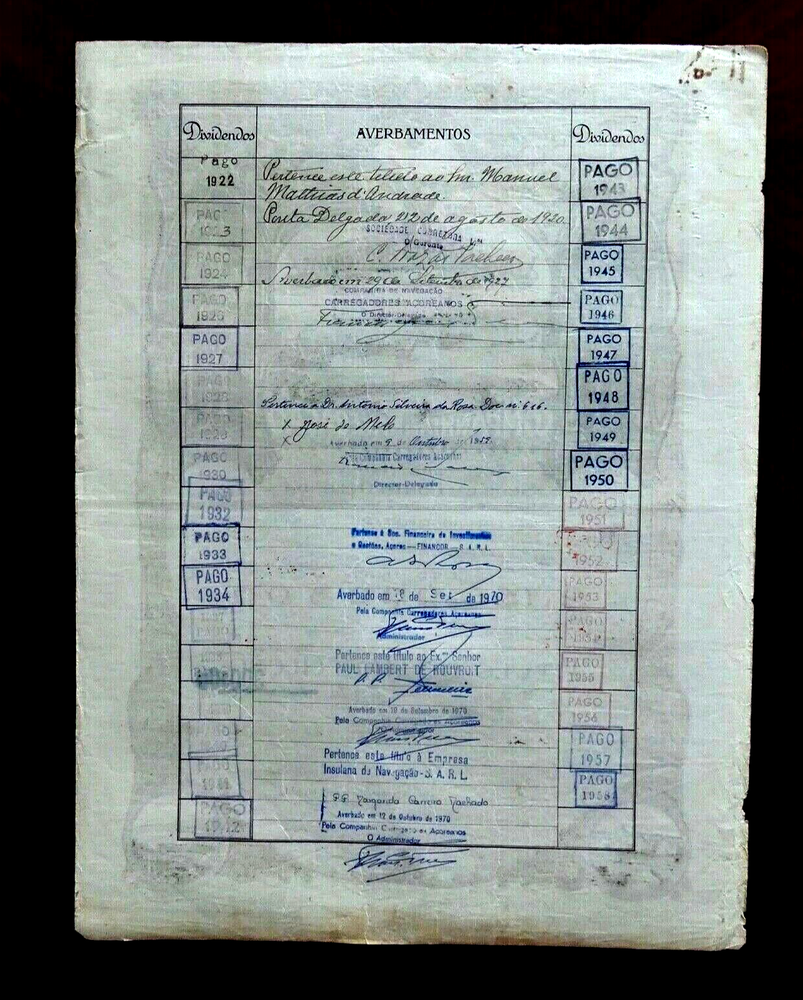 Dividendos
Pago
1922
PAGO
1923
PAGO
1924
PAGO
PAGO
1927
PAGO
1930
PAGO
1932
PAGO
1933
PAGO
1934
PAGO
AVERBAMENTOS
Pertence este titulo ao Snr. Manuel
Mathias d'Andrade.
Ponta Delgada 12 de agosto de 1920.
SOCIEDADE CORRETORA
O Gerente
Averbado em 29 de Setembro de 1927
COMPANHIA DE NAVEGAÇÃO
CARREGADORES AÇOREANOS
O Director-Delegado
Pertence a Dr. Antonio Silveira da Rosa. Doc nº 616.
X José de Melo
X Averbado em 9 de Outubro de
Companhia Carregadores Açoreanos
Director-Delegado
Pertence à Soc. Financeira de Investimentos
e Gestões, Açores — FINANÇOR — S. A. R. L.
Averbado em de Set de 1970
Pela Companhia Carregadores Açoreanos
Administrador
Pertence este título ao Ex.mo Senhor
PAUL LAMBERT DE ROUVROIT
Averbado em 19 de Setembro de 1970
Pela Companhia Carregadores Açoreanos
Pertence este título à Empresa
Insulana de Navegação-S. A. R. L.
Margarida Carreiro Machado
Averbado em 12 de Outubro de 1970
Pela Companhia Carregadores Açoreanos
O Administrador
Dividendos
PAGO
1943
PAGO
1944
PAGO
1945
PAGO
1946
PAGO
1947
PAGO
1948
PAGO
1949
PAGO
1950
PAGO
1951
PAGO
1952
PAGO
1953
PAGO
PAGO
1955
PAGO
1956
PAGO
1957
PAGO
1958